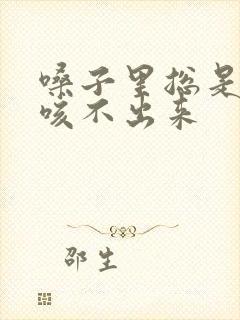 嗓子里总是
咳不出来
邵生